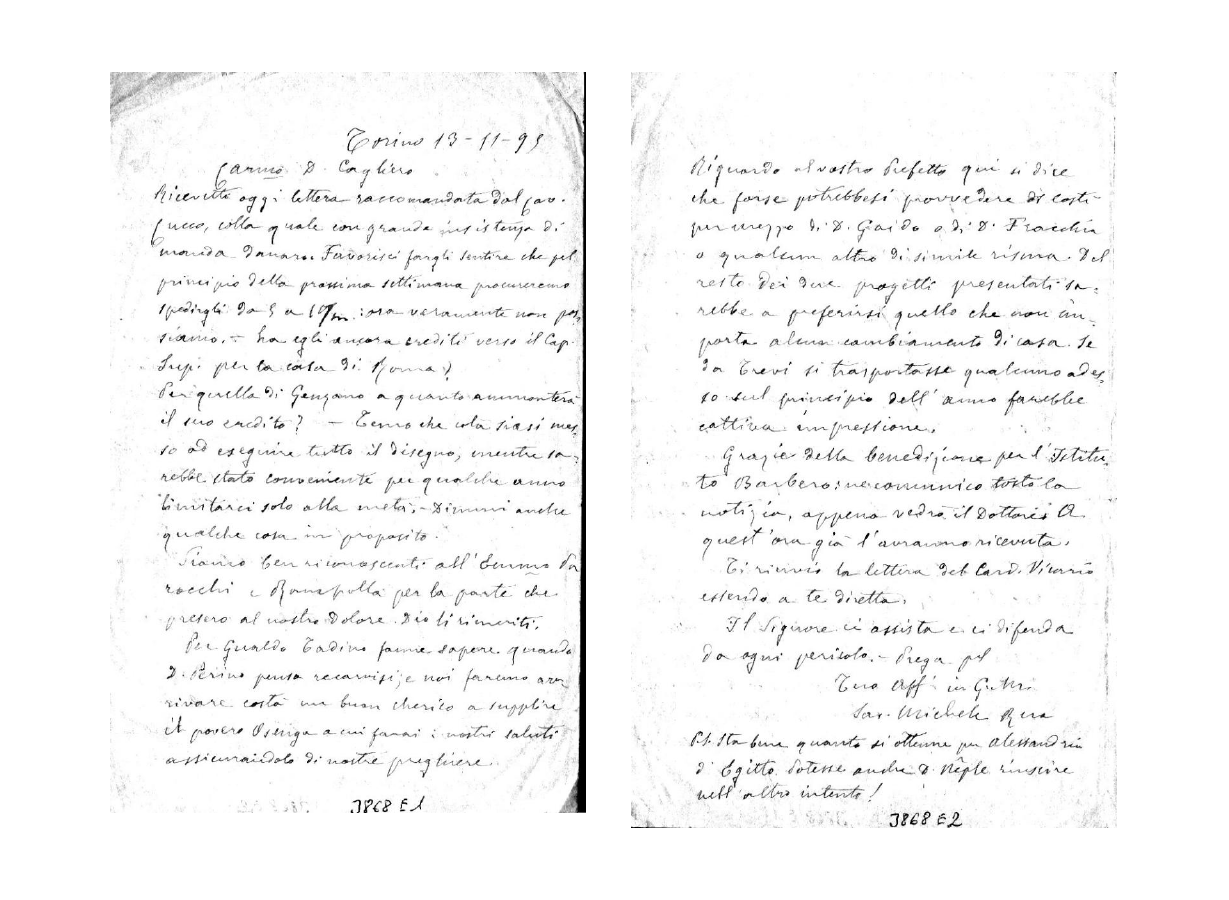 Torino 13-11-95
Carmo D. Cagliero
Ricevetti oggi lettera raccomandata dal Cav.
Cucco, colla quale con grande insistenza di
manda danaro. Favorisci fargli sentire che pel
principio della prossima settimana procureremo
spedirgli da 5 a 10/m: ora veramente non pos
siamo. - ha egli ancora crediti verso il Cap.
Sup. per la casa di Roma?
Per quella di Genzano a quanto ammonterà
il suo credito? - Temo che colà siasi mes
so ad eseguire tutto il disegno, mentre sa-
rebbe stato conveniente per qualche anno
limitarci solo alla metà. - Dimmi anche
qualche cosa in proposito.
Siamo ben riconoscenti all'Emmo Pa
rocchi e Rampolla per la parte che
presero al nostro dolore. Dio li rimeriti.
Per Gualdo Tadino fammi sapere quando
D. Perino pensa recarvisi; e noi faremo ar
rivare costà un buon cherico a supplire
il povero Osenga a cui farai i nostri saluti
assicurandolo di nostre preghiere.
J868 E1
Riguardo al vostro Prefetto qui si dice
che forse potrebbesi provvedere di costì
per mezzo di D. Gaido o di D. Fracchia
o qualcun altro di simile risma. Del
resto dei due progetti presentati sa-
rebbe a preferirsi quello che non im-
porta alcun cambiamento di casa. Se
da Trevi si trasportasse qualcuno ades-
so sul principio dell'anno farebbe
cattiva impressione.
Grazie della benedizione per l'Istitu-
to Barbero: ne comunico tosto la
notizia, appena vedrò il Dottore. A
quest'ora già l'avranno ricevuta.
Ti rinvio la lettera del Card. Vicario
essendo a te diretta.
Il Signore ci assista e ci difenda
da ogni pericolo. - Prega pel
Tuo Aff. in G. e M.
Sac. Michele Rua
P.S. Sta bene quanto si ottenne per Alessandria
d'Egitto. Potesse anche D. Nèple riuscire
nell'altro intento!
J868 E2